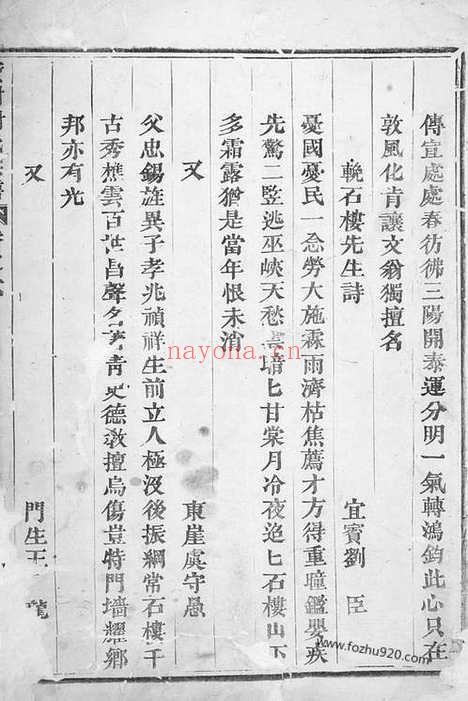 傳宜處處春彷彿三陽開泰運分明一氣轉鴻鈞此心只在
敦風化肯讓文翁獨擅名
輓石樓先生詩 宜賓劉 臣
憂國憂民一念勞大施霖雨濟枯焦薦才方得重瞳鑑嬰疾
先驚二竪逃巫峽天愁雲暗匕甘棠月冷夜迢匕石樓山下
多霜露猶是當年恨未消
又 東崖虞守愚
父忠錫旌異子孝兆禎祥生前立人極沒後振綱常石樓千
古秀樵雲百世昌聲名 青史德敎擅烏傷豈特門墻耀鄉
邦亦有光
又 門生王
nayona.cn
www.fozhu920.com